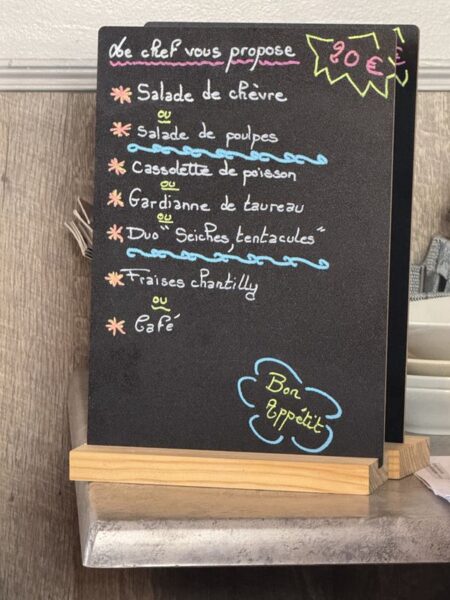 Le chef vous propose
20 €
* Salade de chèvre
ou
* Salade de poulpes
* Cassolette de poisson
ou
* Gardianne de taureau
ou
* Duo " Seiches, tentacules "
* Fraises chantilly
ou
* Café
Bon
Appétit